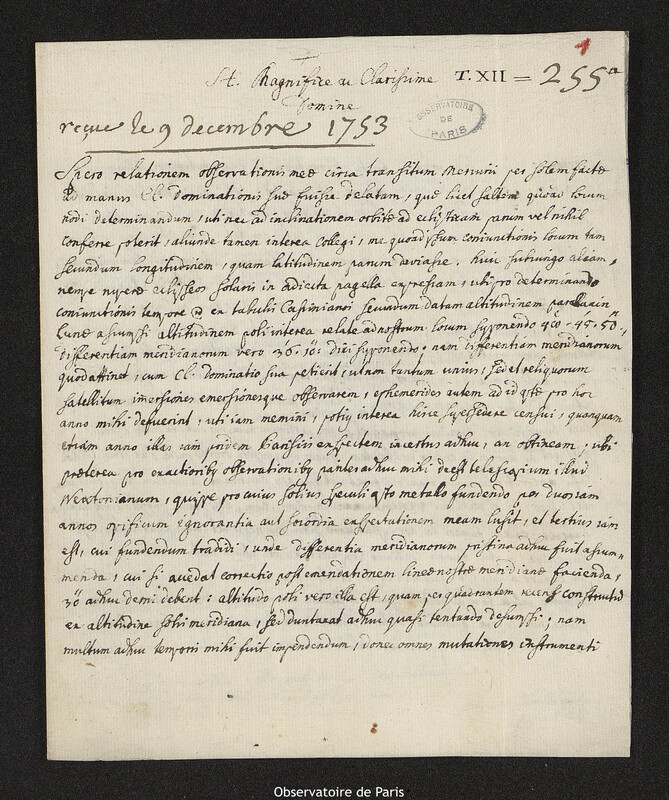 1
Magnifice ac Clarissime T. XII = 255
Domine
OBSERVATOIRE
DE
PARIS
reçue le 9 decembre 1753
Spero relationem observationis meæ circa transitum Mercurii per solem factæ
ad manus Cl. dominationis suæ fuisse delatam, quæ licet saltem quoad locum
nodi determinandum, uti nec ad inclinationem orbitæ ad eclipticam parum vel nihil
conferre poterit, aliunde tamen interea collegi, me quoad ipsum coniunctionis locum tam
secundum longitudinem, quam latitudinem parum deviasse. huic subiungo
nempe nuperæ eclipseos solaris in adiecta pagella expressam, uti pro determinando
coniunctionis tempore ex tabulis Cassinianis secundum datam altitudinem
Lunæ assumpsi altitudinem poli interea relate ad nostrum locum supponendo 45. 50,
differentiam meridianorum vero 36. 10: supponendo: nam differentiam meridianorum
quod attinet, cum Cl. dominatio sua petierit, ut non tantum unius, sed et reliquorum
satellitum imersiones emersionesque observarem, ephemerides autem ad id pro hoc
anno mihi defuerint, uti iam memini, potius interea hisce supersedere censui, quanquam
etiam anno illas iam pridem Parisiis exspectem incertus adhuc, an obtineam, ubi
præterea pro exactioribus observationibus adhuc mihi deest telescopium illud
Newtonianum, quippe pro cuius solius speculi metallo fundendo per duos iam
annos opificum ignorantia aut socordia exspectationem meam lusit, et tertius iam
est, cui fundendum tradidi, unde differentia meridianorum pristina adhuc fuit assum-
menda, cui si correctio post emendationem lineæ nostræ meridianæ facienda,
30 adhuc demi debent: altitudo poli vero illa est, quam per quadrantem recens constructum
ex altitudine solis meridiana, sed duntaxat adhuc quasi tentando desumpsi; nam
multum adhuc temporis mihi fuit impendendum, donec omnes mutationes instrumenti
Observatoire de Paris